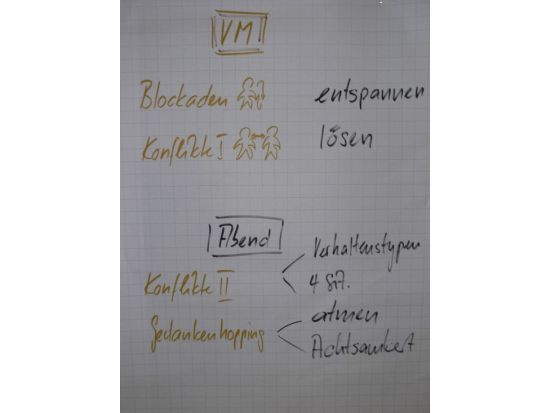 VM
Blockaden entspannen
Konflikte I lösen
Abend
Verhaltenstypen
Konflikte II
4
Gedankenhopping
atmen
Achtsamkeit